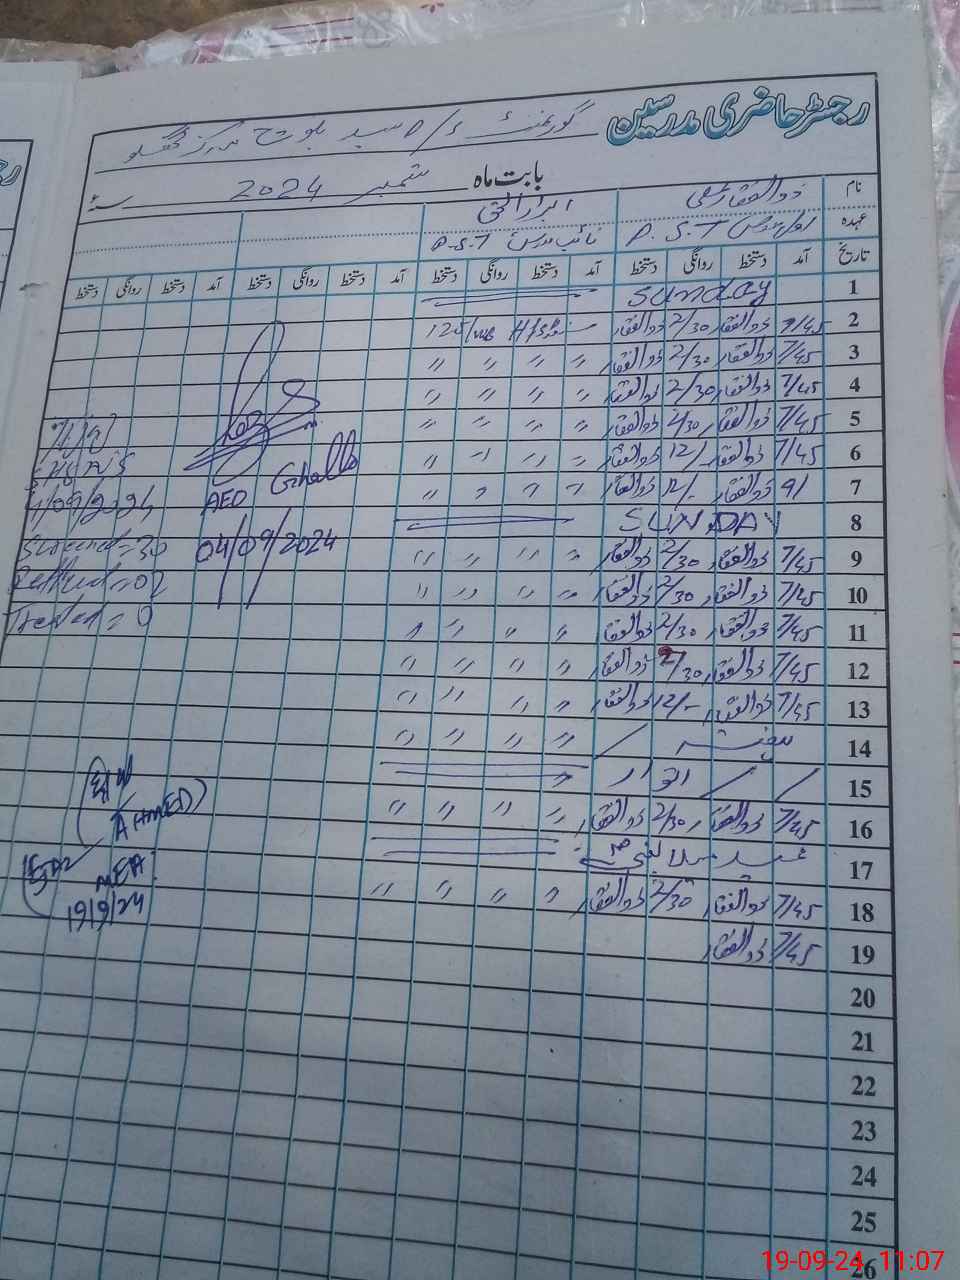 رجسٹر حاضری مدرسین
گورنمنٹ
بابت ماہ ستمبر 2024 سنہ
نام ذوالفقار ابرار الحق
عہدہ اول مدرس P.S.T نائب مدرس P.S.T
تاریخ آمد دستخط روانگی دستخط آمد دستخط روانگی دستخط آمد دستخط روانگی دستخط آمد دستخط روانگی دستخط
1 Sunday
2 7/45 ذوالفقار 2/30 ذوالفقار
3 7/45 ذوالفقار 2/30 ذوالفقار 〃 〃 〃 〃
4 7/45 ذوالفقار 2/30 ذوالفقار 〃 〃 〃 〃
5 7/45 ذوالفقار 2/30 ذوالفقار 〃 〃 〃 〃
6 7/45 ذوالفقار 12/- ذوالفقار 〃 〃 〃 〃
7 9/ ذوالفقار 12/- ذوالفقار 〃 〃 〃 〃
8 SUNDAY
9 7/45 ذوالفقار 2/30 ذوالفقار 〃 〃 〃 〃
10 7/45 ذوالفقار 2/30 ذوالفقار 〃 〃 〃 〃
11 7/45 ذوالفقار 2/30 ذوالفقار 〃 〃 〃 〃
12 7/45 ذوالفقار 2/30 ذوالفقار 〃 〃 〃 〃
13 7/45 ذوالفقار 12/- ذوالفقار 〃 〃 〃 〃
14 ہفتہ 〃 〃 〃 〃
15 اتوار
16 7/45 ذوالفقار 2/30 ذوالفقار 〃 〃 〃 〃
17 عید میلاد النبی ﷺ
18 7/45 ذوالفقار 2/30 ذوالفقار 〃 〃 〃 〃
19 7/45 ذوالفقار
20
21
22
23
24
25
26
AEO Ghallo
04/09/2024
4/09/2024
Screened = 30
Reffred = 02
Treated = 0
AHMED
MEA
19/9/24
19-09-24 11:07